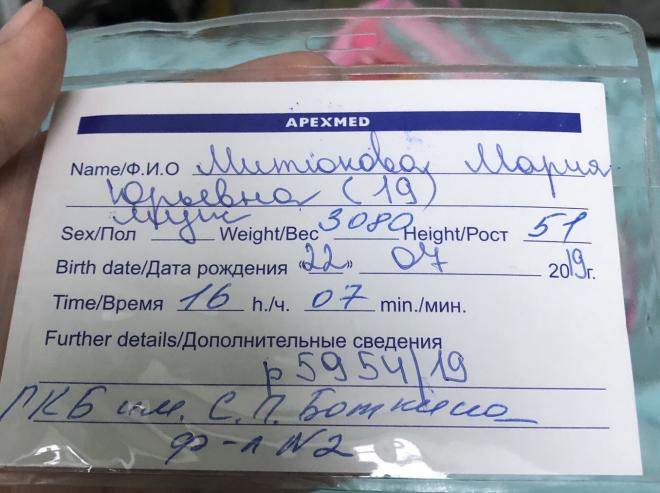 APEXMED
Name/Ф.И.О Митюкова Мария
Юрьевна (19)
Sex/Пол муж Weight/Вес 3080 Height/Рост 51
Birth date/Дата рождения «22» 07 2019г.
Time/Время 16 h./ч. 07 min./мин.
Further details/Дополнительные сведения
р 5954/19
ГКБ им. С.П. Боткина
ф-л N2